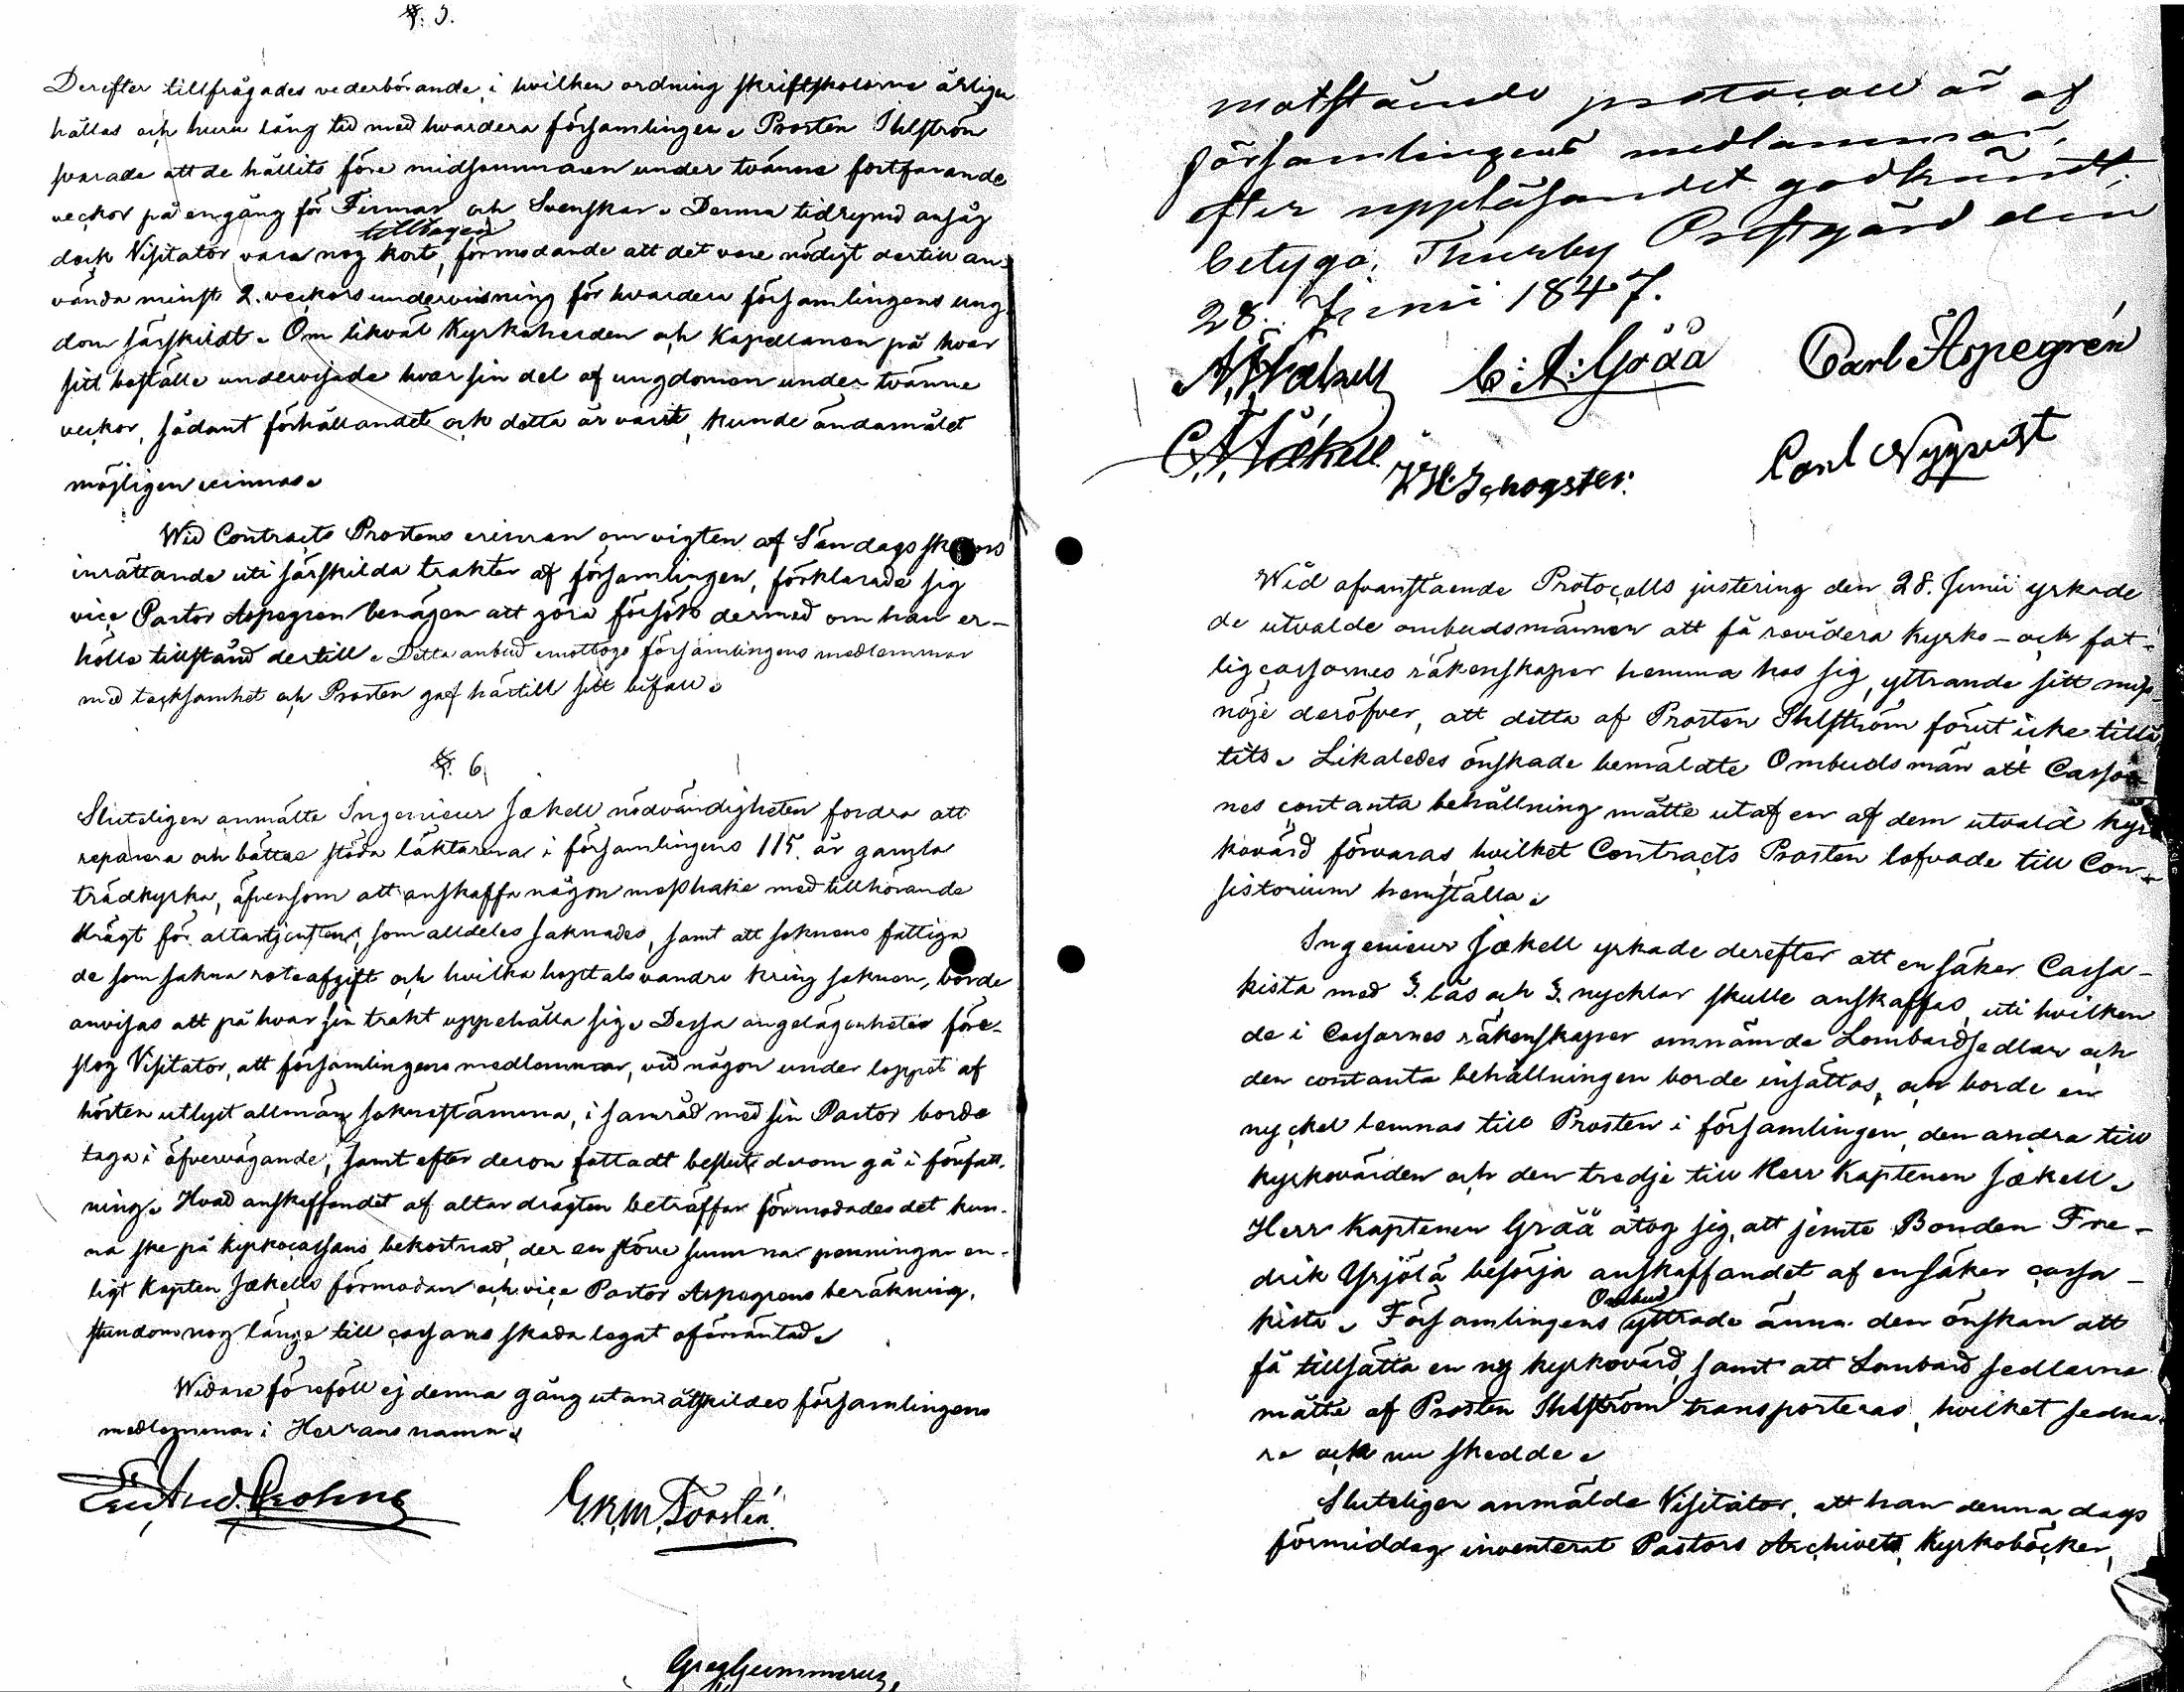 §. 5.
Derefter tillfrågades vederbörande, i hvilken ordning skriftskolorna årligen
hållas och huru lång tid med hvardera församlingen. Prosten Ihlström
svarade att de hållits före midsommaren under tvänne fortfarande
veckor på engång för Finnar och Svenskar. Denna tidrymd ansåg
tilltagen
dock Visitator vara nog kort, förmodande att det vore nödigt dertill an-
vända minst 2. veckors undervisning för hvardera församlingens ung-
dom särskildt. Om likväl Kyrkoherden och Kapellanen på hvar
sitt boställe undervisade hvar sin del af ungdomen under tvänne
veckor, sådant förhållandet ock detta år varit, kunde ändamålet
möjligen vinnas.
Wid Contracts Prostens erinran om vigten af Söndags skolors
inrättande uti särskilda trakter af församlingen, förklarade sig
vice Pastor Aspegren benägen att göra försök dermed om han er-
hölle tillstånd dertill. Detta anbud emottogo församlingens medlemmar
med tacksamhet och Prosten gaf härtill sitt bifall.
§. 6.
Sluteligen anmälte Ingenieur Jækell nödvändigheten fordra att
reparera och bättre stöda läktarena i församlingens 115. år gamla
trädkyrka, äfvensom att anskaffa någon messhake med tillhörande
drägt för altartjensten, som alldeles saknades, samt att soknens fattiga
de som sakna roteafgift och hvilka hoptals vandra kring soknen, borde
anvisas att på hvar sin trakt uppehålla sig. Dessa angelägenheter före-
slog Visitator, att församlingens medlemmar, vid någon under loppet af
hösten utlyst allmän soknestämma, i samråd med sin Pastor borde
taga i öfvervägande, samt efter derom fattadt beslut derom gå i författ-
ning. Hvad anskaffandet af altar drägten beträffar förmodades det kun-
na ske på kyrkocassans bekostnad, der en större summa penningar en-
ligt Kapten Jækells förmodan och vice Pastor Aspegrens beräkning,
stundom nog länge till cassans skada legat oförräntad.
Widare föreföll ej denna gång utan åtskildes församlingens
medlemmar i Herrans namn.
Grohns
G.R.M. Forstén
Greg Gummerus,
motstående protocoll är af
församlingens medlemmar,
efter uppläsandet godkändt,
betyga. Thusby Prestgård den
28. Junii 1847.
A. Jækell C: A: Gööä Carl Aspegrén
C.A. Jækell Carl Nyqvist
Wid ofvanstående Protocolls justering den 28. Junii yrkade
de utvalde ombudsmännen att få revidera Kyrko- och fat-
tigcassornes räkenskaper hemma hos sig, yttrande sitt miss-
nöje deröfver, att detta af Prosten Ihlström förut icke tillå-
tits. Likaledes önskade bemäldte Ombudsmän att Cassor-
nes contanta behållning måtte utaf en af dem utvald kyr-
kovärd förvaras hvilket Contracts Prosten lofvade till Con-
sistorium hemställa.
Ingenieur Jækell yrkade derefter att en säker Cassa-
kista med 3. lås och 3. nycklar skulle anskaffas, uti hvilken
de i Cassornes räkenskaper omnämde Lombardsedlar och
den contanta behållningen borde insättas, och borde en
nyckel lemnas till Prosten i församlingen, den andra till
kyrkovärden och den tredje till Herr Kaptenen Jækell.
Herr Kaptenen Grää åtog sig, att jemte Bonden Fre-
drik Yrjölä besörja anskaffandet af en säker cassa-
Ombud
kista. Församlingens yttrade ännu den önskan att
få tillsätta en ny kyrkovärd, samt att Lombard sedlarna
måtte af Prosten Ihlström transporteras, hvilket sedna-
re ock nu skedde.
Sluteligen anmälde Visitator, att han denna dags
förmiddag inventerat Pastors Archivets Kyrkoböcker,